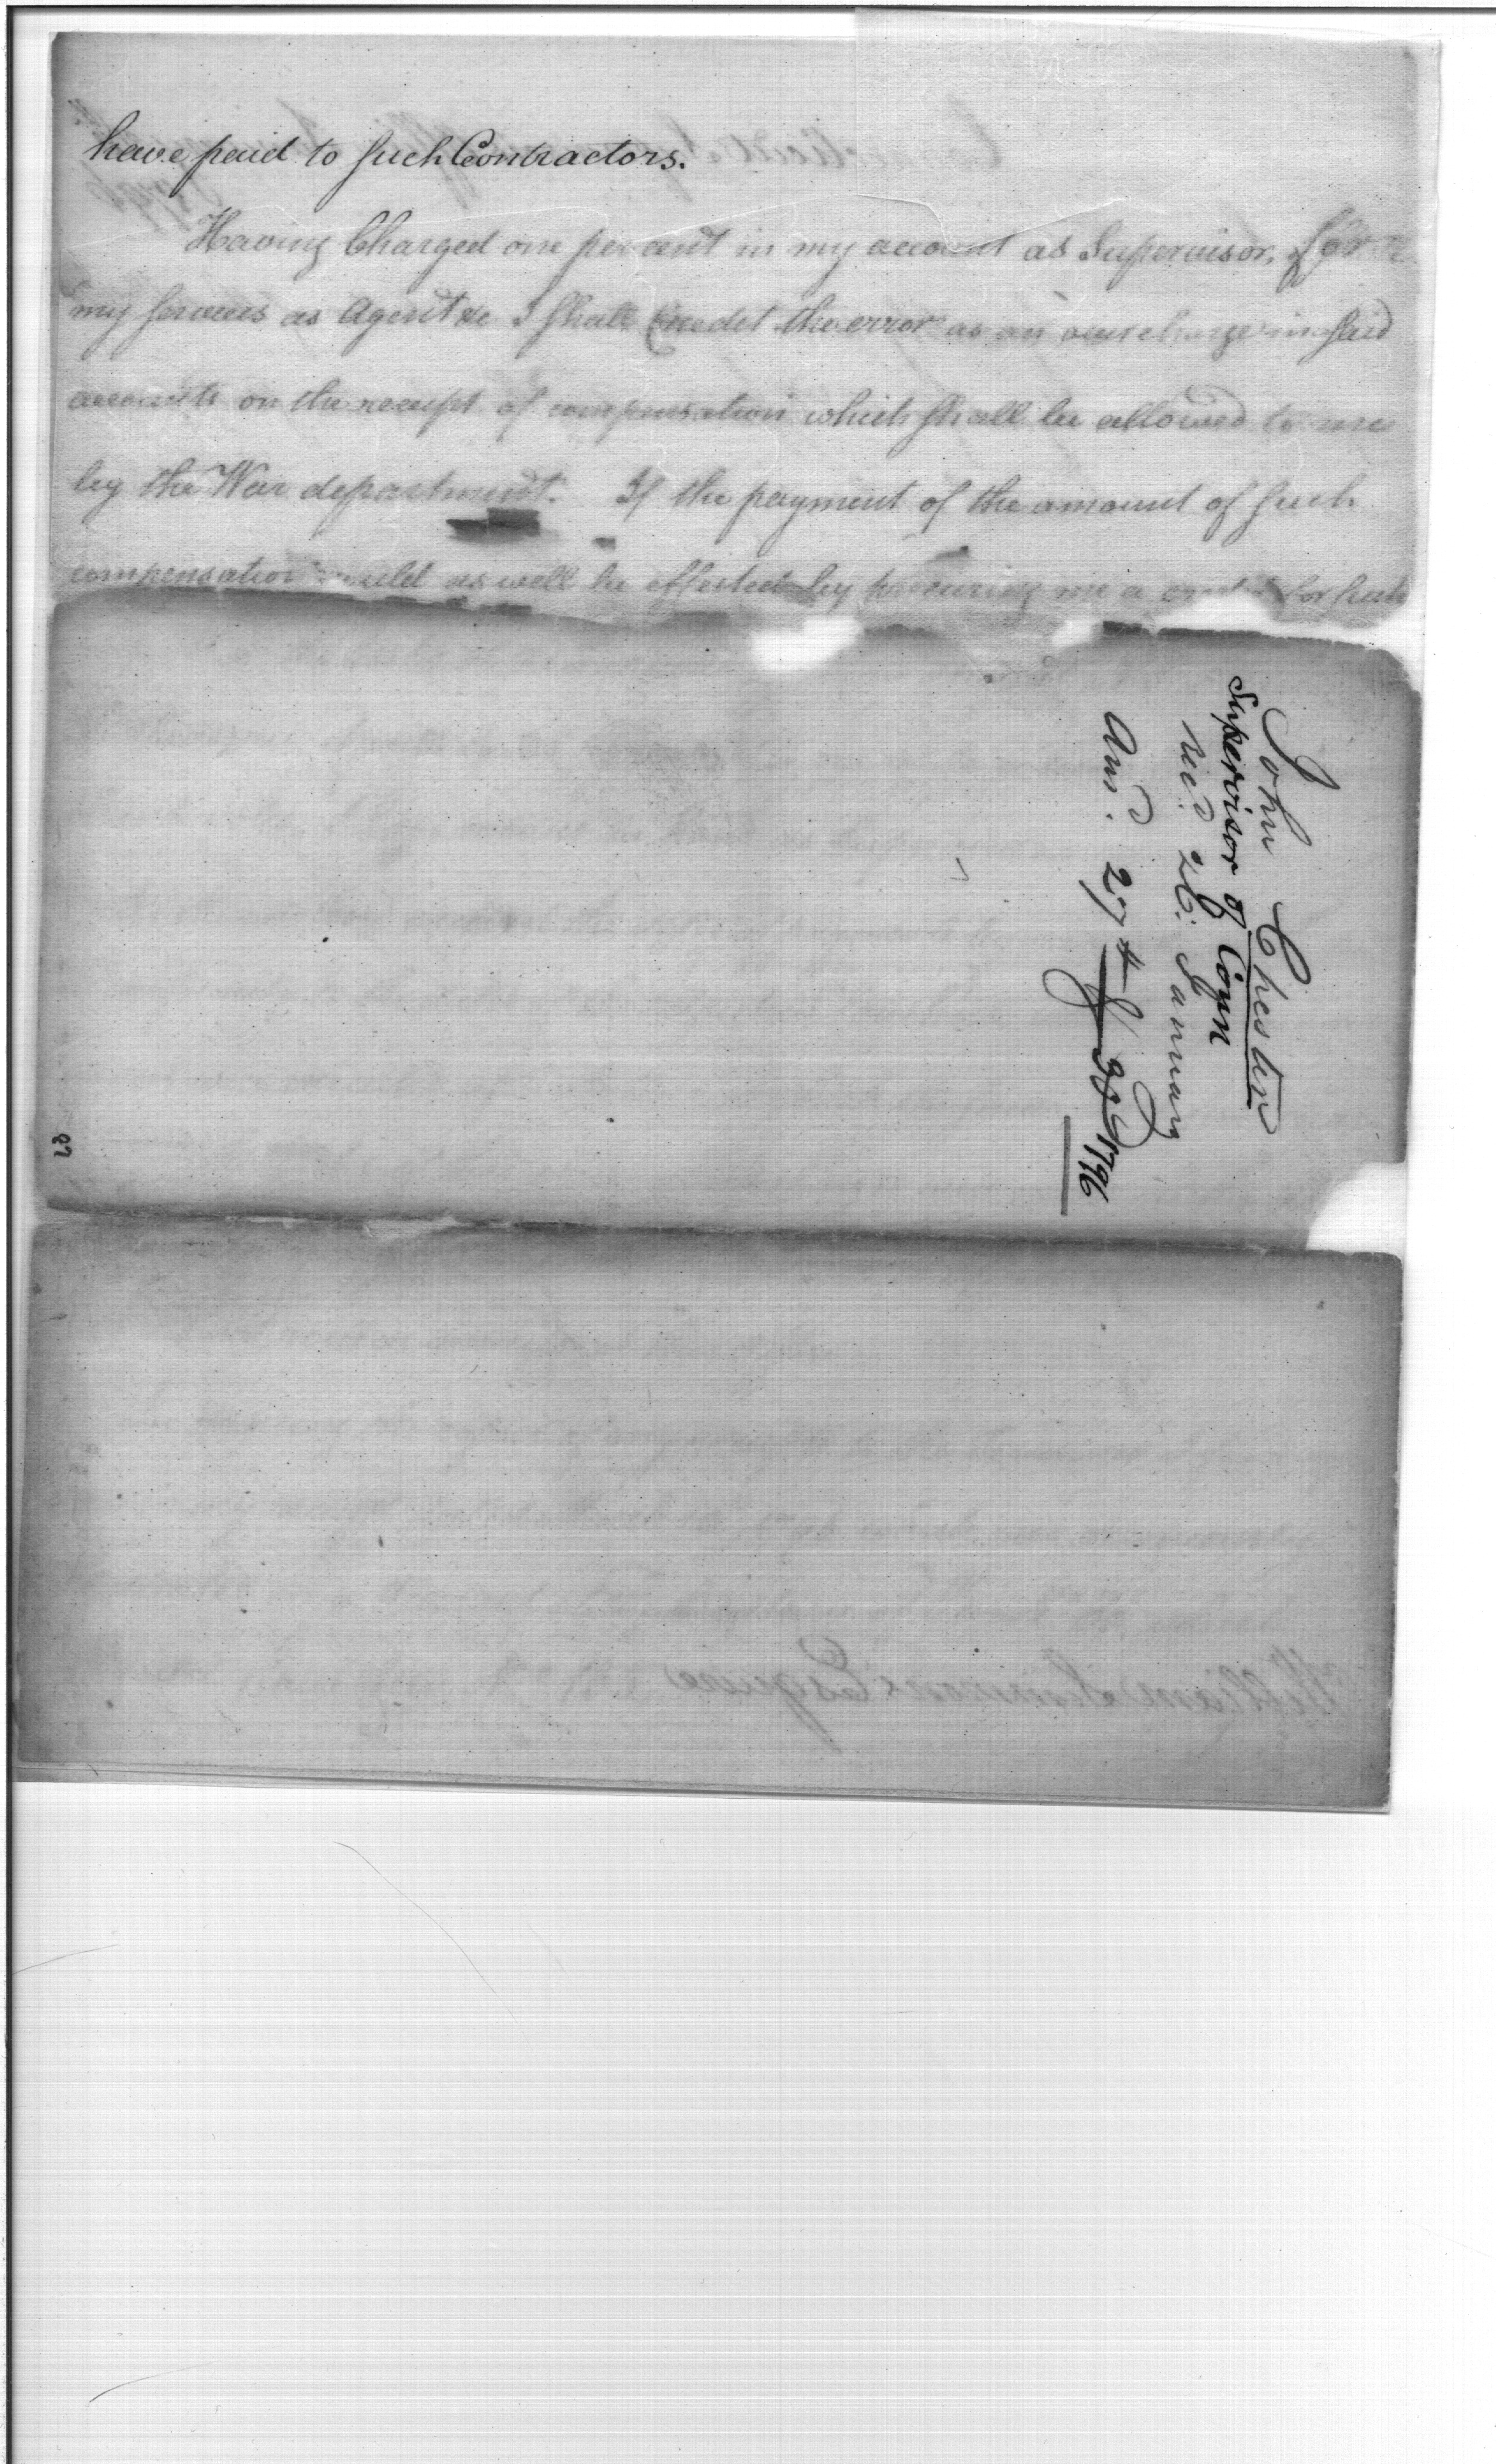 have paid to such Contractors.
Having Charged one per cent in my account as Supervisor, for
my services as Agent &c I shall Credit the error as an overcharge in said
accounts on the receipt of compensation which shall be allowed to me
by the War department. If the payment of the amount of such
compensation could as well be effected by procuring me a credit for such
John Chester
Supervisor of Conn
recd 26. January
Ansd. 27th 1796
87
William Simmons Esquire